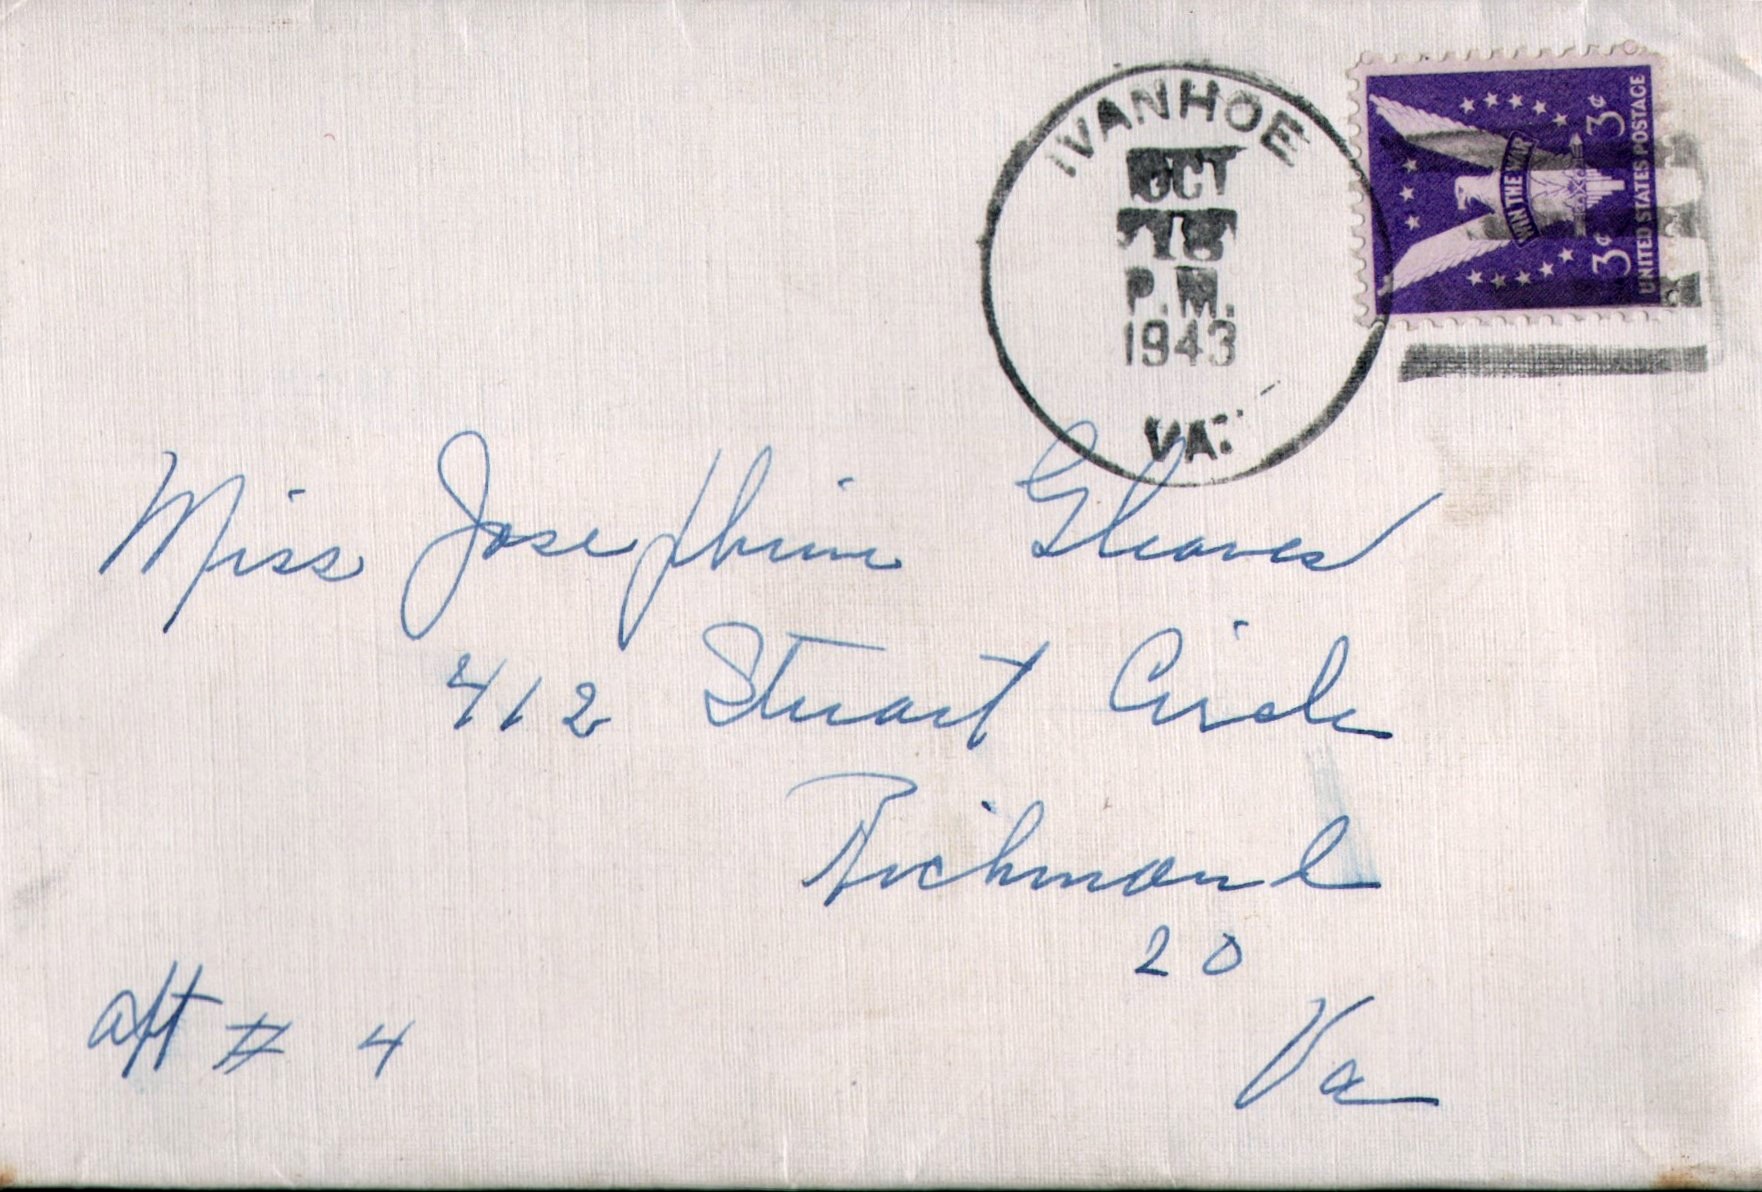 IVANHOE
OCT
18
P.M.
1943
VA.
WIN THE WAR
3¢ 3¢
UNITED STATES POSTAGE
Miss Josephine Gleaves
412 Stuart Circle
Richmond
20
Va
apt # 4